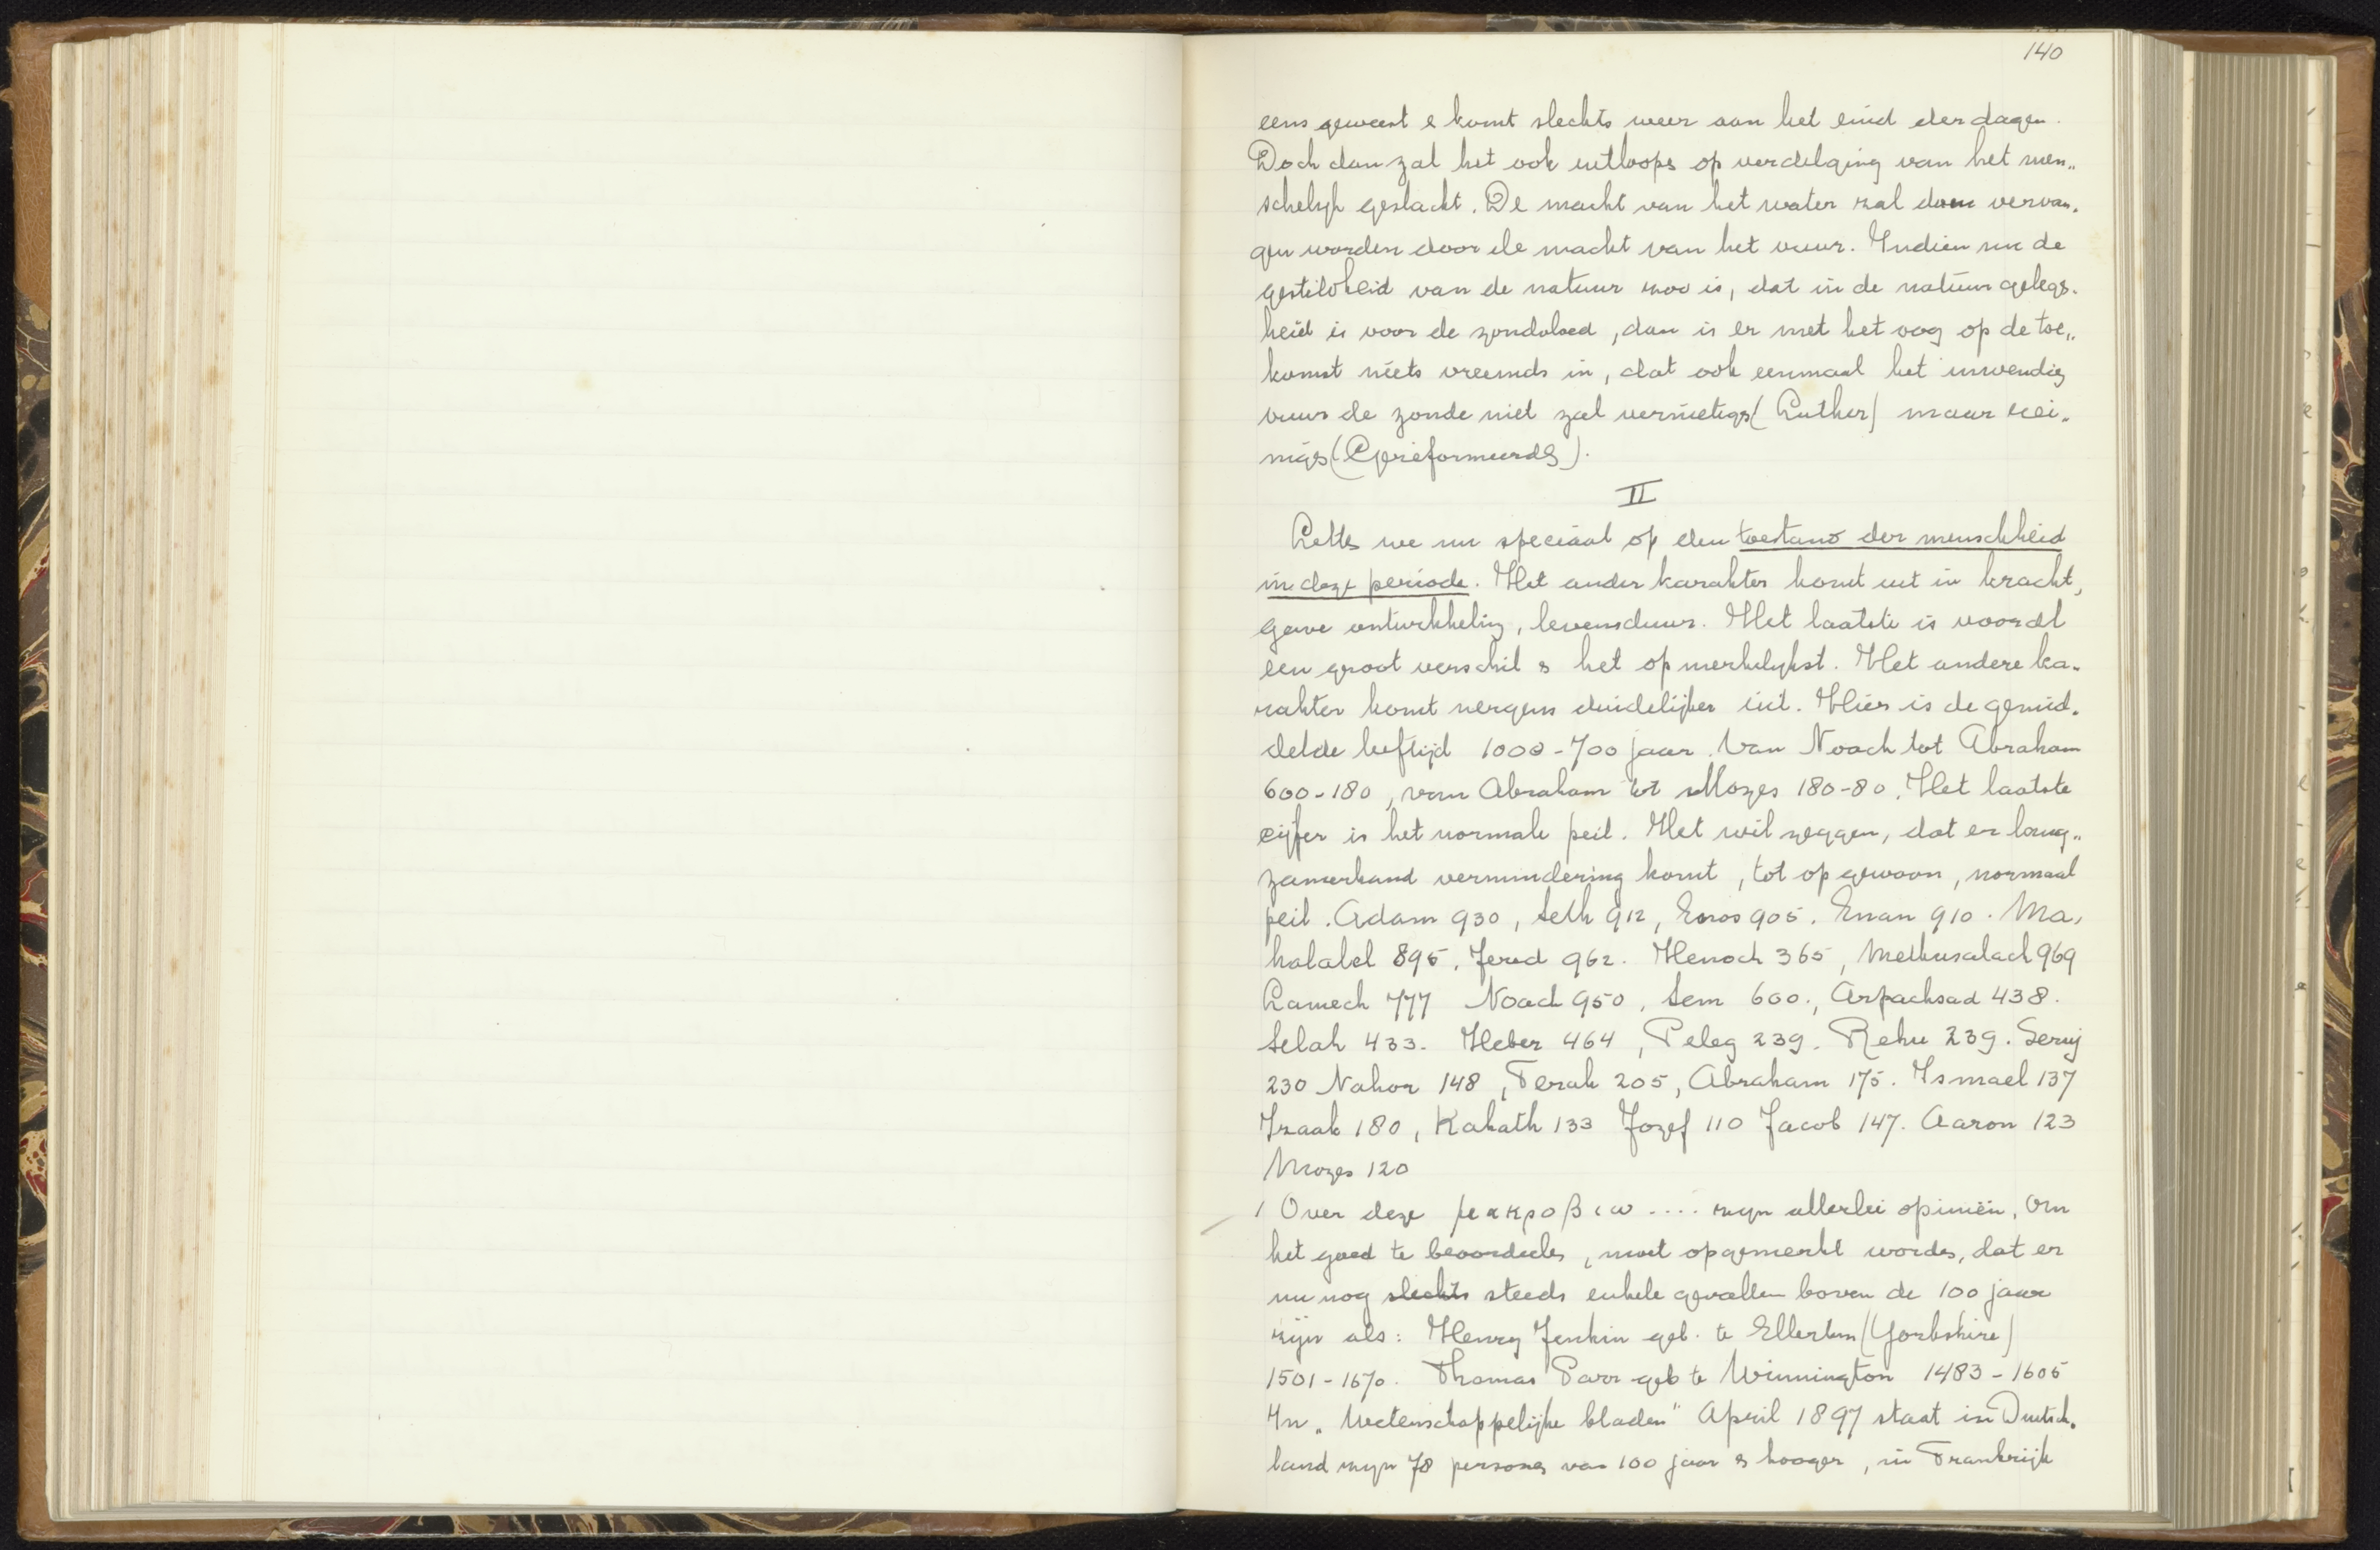 140
eens geweest & komt slechts weer aan het eind der dagen.
Doch dan zal het ook uitloopen op verdelging van het men„
schelijk geslacht. De macht van het water zal dan vervan„
gen worden door de macht van het vuur. Indien nu de
gesteldheid van de natuur zoo is, dat in de natuur gelegen„
heid is voor de zondvloed, dan is er met het oog op de toe„
komst niets vreemds in, dat ook eenmaal het inwendig
vuur de zonde niet zal vernietigen (Luther) maar rei„
nigen (Gereformeerden).
II
Letten we nu speciaal op den toestand der menschheid
in deze periode. Het ander karakter komt uit in kracht,
gave ontwikkeling, levensduur. Het laatste is vooral
een groot verschil & het opmerkelijkst. Het andere ka„
rakter komt nergens duidelijker uit. Hier is de gemid„
delde leeftijd 1000-700 jaar. Van Noach tot Abraham
600-180, van Abraham tot Mozes 180-80. Het laatste
cijfer is het normale peil. Het wil zeggen, dat er lang„
zamerhand vermindering komt, tot op gewoon, normaal
peil. Adam 930, Seth 912, Enos 905. Enan 910. Ma„
halalel 895, Jered 962. Henoch 365, Methusalach 969
Lamech 777 Noach 950, Sem 600., Arpachsad 438.
Selah 433. Heber 464, Peleg 239. Rehu 239. Serug
230 Nahor 148, Terah 205, Abraham 175. Ismael 137
Izaak 180, Kahath 133 Jozef 110 Jacob 147. Aaron 123
Mozes 120
1 Over deze μακροβιω .... zijn allerlei opiniën. Om
het goed te beoordeelen, moet opgemerkt worden, dat er
nu nog slechts steeds enkele gevallen boven de 100 jaar
zijn als: Henry Jenkin geb. te Ellerton (Yorkshire)
1501-1670. Thomas Parr geb te Winnington 1483-1605
In „Wetenschappelijke bladen" April 1897 staat in Duitsch„
land zijn 78 personen van 100 jaar & hooger, in Frankrijk